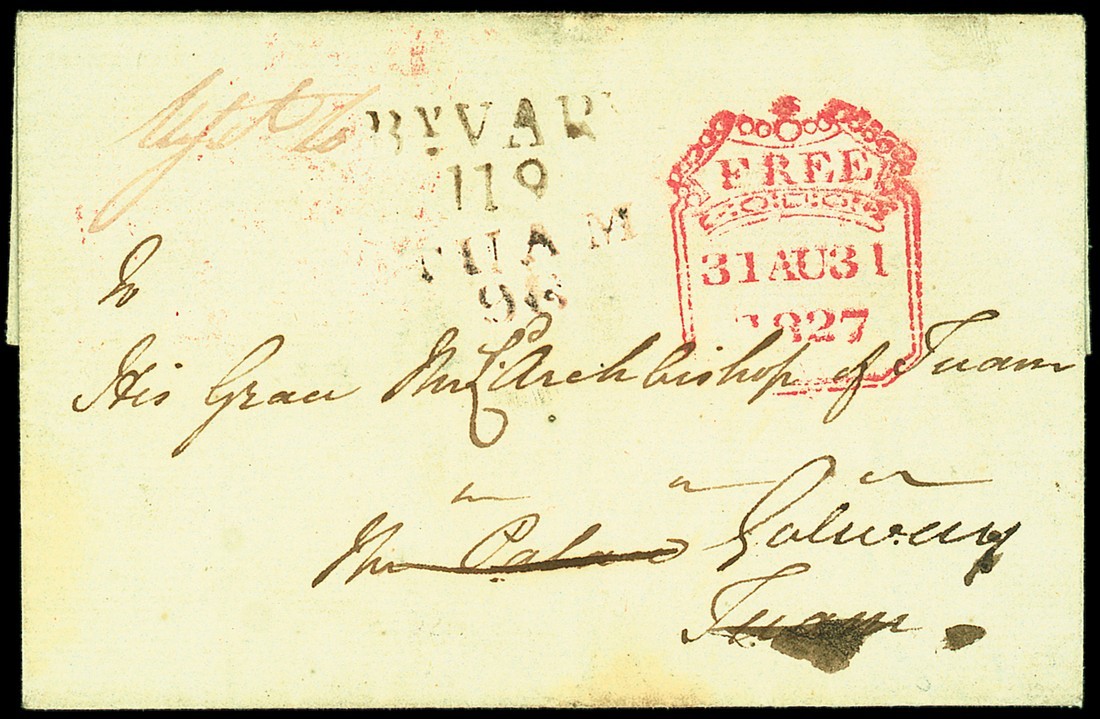 BtVAR
119
TUAM
96
FREE
31AU31
1827
To
His Grace The Ld. Archbishop of Tuam
The Palace Galway
Tuam.